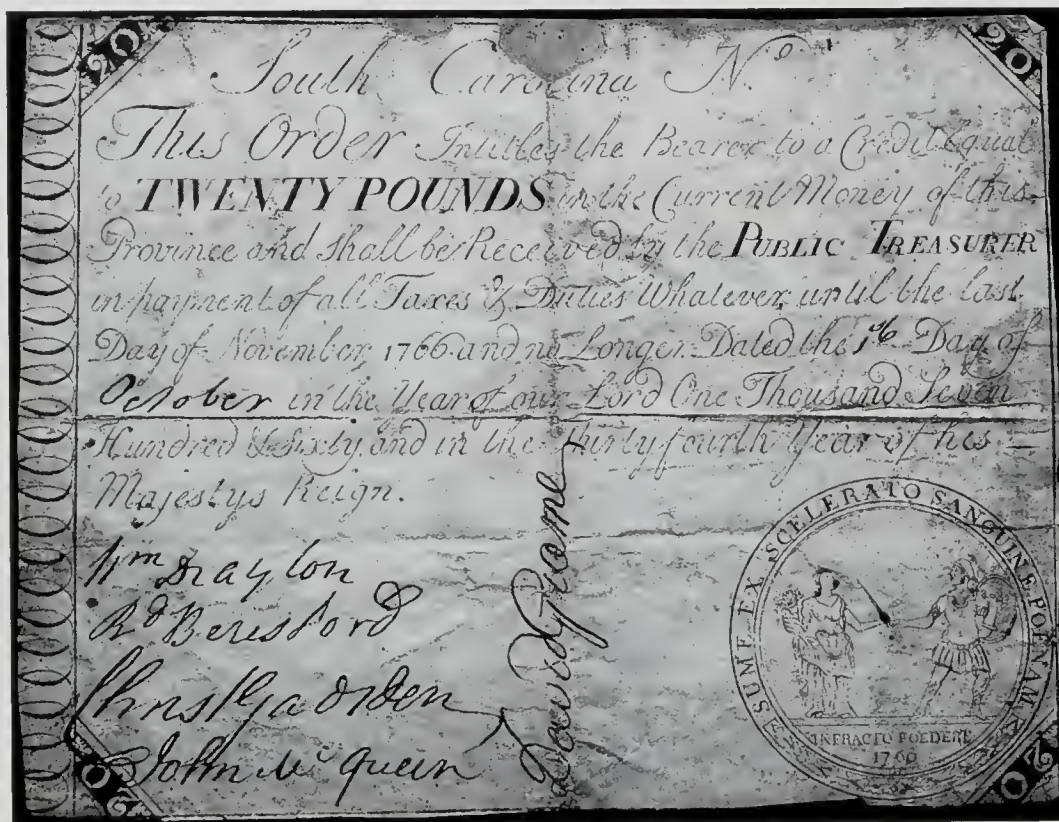 20 20
South Carolina No.
This Order Intitles the Bearer to a Credit Equal
to TWENTY POUNDS in the Current Money of this
Province and shall be Received by the PUBLIC TREASURER
in payment of all Taxes & Duties Whatever until the last
Day of November 1766 and no Longer Dated the Day of
October in the Year of our Lord One Thousand Seven
Hundred & Sixty and in the Thirty fourth Year of his
Majestys Reign.
Wm Drayton
Rd Beresford
Christ Gadsden
John McQueen
David Graeme
SUME EX SCELERATO SANGUINE POENAM
INFRACTO FOEDERE
1760
20 20